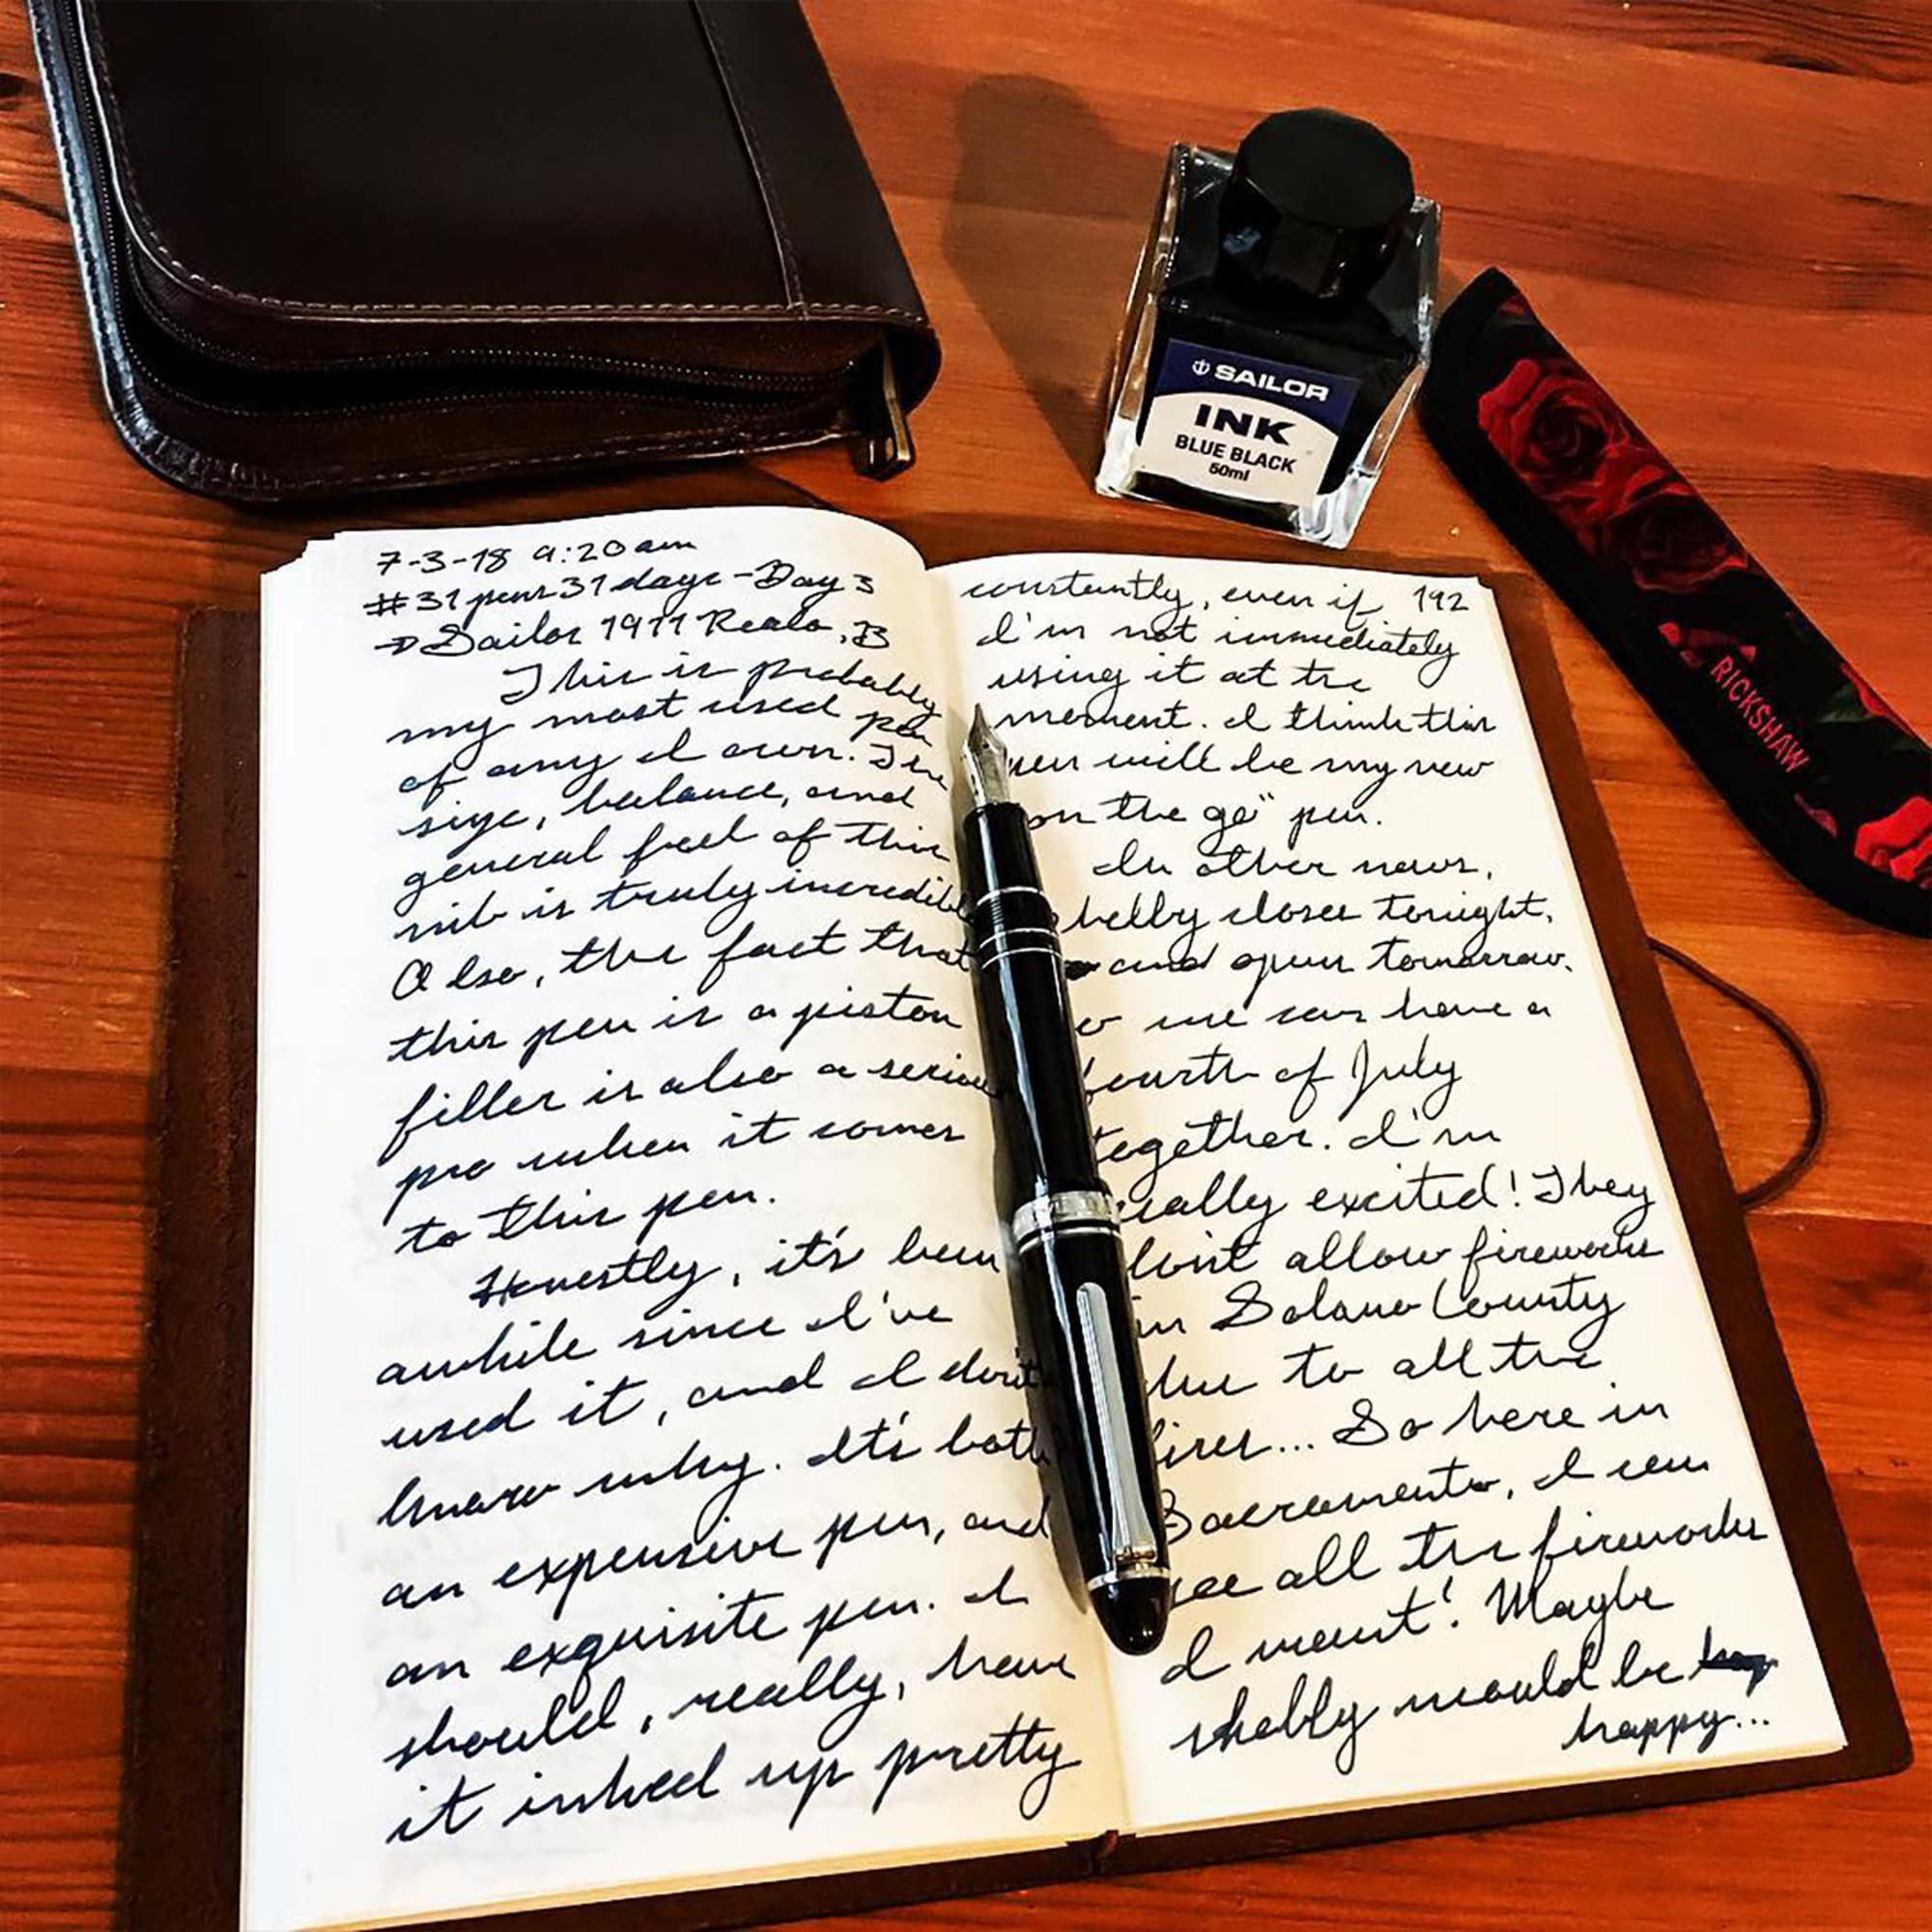 SAILOR
INK
BLUE BLACK
50ml
RICKSHAW
7-3-18 9:20am
#31pens31days - Day 3
→ Sailor 1911 Realo, B
This is probably
my most used pen
of any I own. The
size, balance, and
general feel of this
nib is truly incredible
Also, the fact that
this pen is a piston
filler is also a serious
pro when it comes
to this pen.
Honestly, it's been
awhile since I've
used it, and I don't
know why. It's both
an expensive pen, and
an exquisite pen. I
should, really, have
it inked up pretty
192
constantly, even if
I'm not immediately
using it at the
moment. I think this
pen will be my new
on the go" pen.
In other news,
helby closes tonight,
and open tomorrow.
we can have a
fourth of July
together. I'm
really excited! They
don't allow fireworks
in Solano County
due to all the
fires... So here in
Sacramento, I can
see all the fireworks
I want! Maybe
shelby would be
happy...